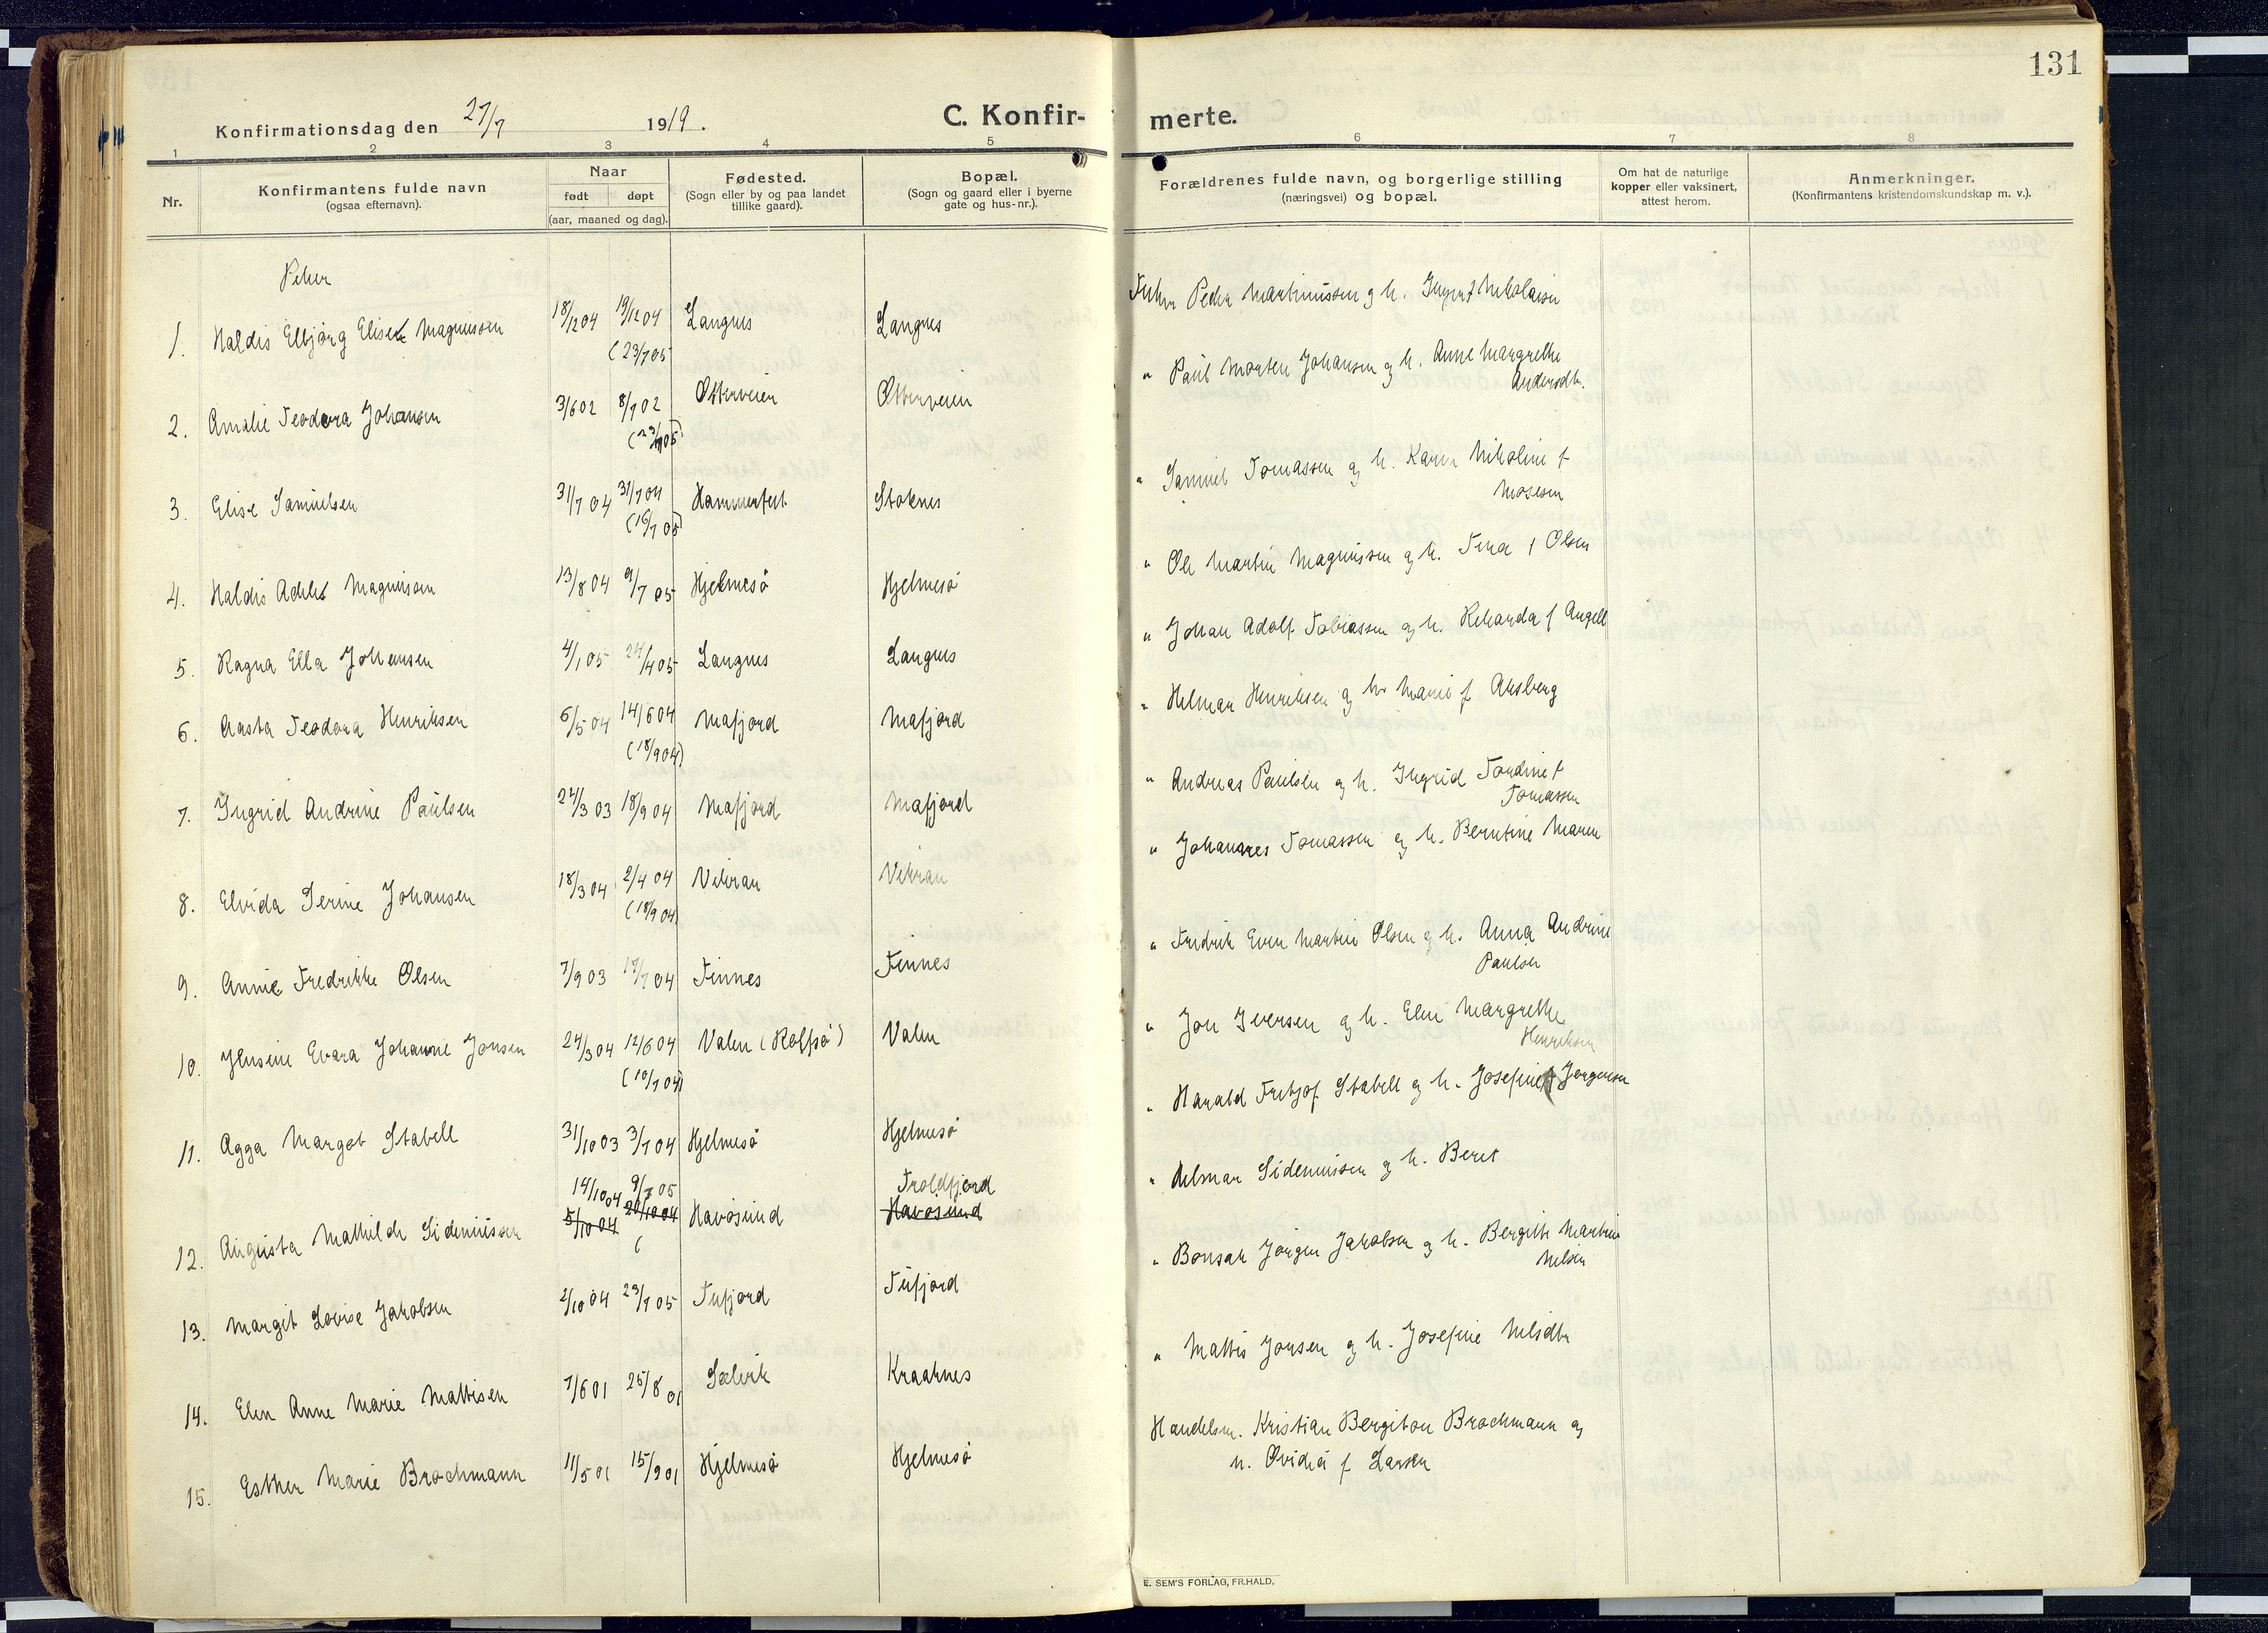 131
Konfirmationsdag den 27/7 1919.
C. Konfirmerte.
1 2 3 4 5 6 7 8
Nr.
Konfirmantens fulde navn
(ogsaa efternavn).
Naar
født døpt
(aar, maaned og dag).
Fødested.
(Sogn eller by og paa landet
tillike gaard).
Bopæl.
(Sogn og gaard eller i byerne
gate og hus-nr.).
Forældrenes fulde navn, og borgerlige stilling
(næringsvei) og bopæl.
Om hat de naturlige
kopper eller vaksinert,
attest herom.
Anmerkninger.
(Konfirmantens kristendomskundskap m. v.).
Piker
1. Haldis Elbjørg Elise Magnussen 18/12 04 19/12 04 Langnes Langnes Peder Martinussen og h. Nikolaisen
(23/7 05
2. Amalie Teodora Johansen 3/6 02 8/7 02 Otterveien Otterveien " Paul Morten Johansen og h. Anne Margrethe
Andersdtr.
3. Elise Samuelsen 31/7 04 31/7 04 Hammerfest Stoknes " Samuel Tomassen og h. Karen Nikoline f
(16/7 05) Mosesen
4. Haldis Magnussen 13/8 04 9/7 05 Hjelmesö Hjelmesö " Ole Martin Magnussen og h. Tina f Olsen
5. Ragna Ella Johansen 4/1 05 24/4 05 Langnes Langnes " Johan Adolf Tobiassen og h. Rikarda f Angell
6. Aasta Teodora Henriksen 6/5 04 14/6 04 Mafjord Mafjord " Hilmar Henriksen og h. Marie f Aksberg
(18/9 04)
7. Ingrid Andrine Paulsen 22/3 03 18/9 04 Mafjord Mafjord " Andreas Paulsen og h. Ingrid Tordine f
Tomassen
8. Elvida Serine Johansen 18/3 04 2/4 04 Vikran Vikran " Johannes Tomassen og h. Berntine Maren
(18/9 04)
9. Annie Fredrikke Olsen 7/9 03 17/7 04 Finnes Finnes " Fredrik Even Martin Olsen og h. Anna Andrine
Paulsen
10. Jensine Evara Johanne Jonsen 24/3 04 12/6 04 Valen (Rolfsö) Valen " Jon Iversen og h. Elen Margrethe
(10/7 04) Henriksen
11. Agga Margot Stabell 31/10 03 3/7 04 Hjelmesö Hjelmesö " Harald Fritjof Stabell og h. Josefine f Jørgensen
14/10 04 9/7 05 Troldfjord
12. Augusta Mathilde Sideniussen 5/10 04 20/10 04 Havösund Havösund " Hilmar Sideniussen og h. Beret
13. Margit Lovise Jakobsen 2/10 04 23/7 05 Tufjord Tufjord " Bonsak Jørgen Jakobsen og h. Bergitte Martine
Nilsen
14. Elen Anne Marie Mattisen 7/6 01 25/8 01 Selvik Kraaknes " Mattis Jonsen og h. Josefine Nilsdtr
15. Esther Marie Brochmann 11/5 01 15/9 01 Hjelmesö Hjelmesö Handelsm. Kristian Bergiton Brochmann og
h. Ovidia f Larsen
E. SEM'S FORLAG, FR.HALD.